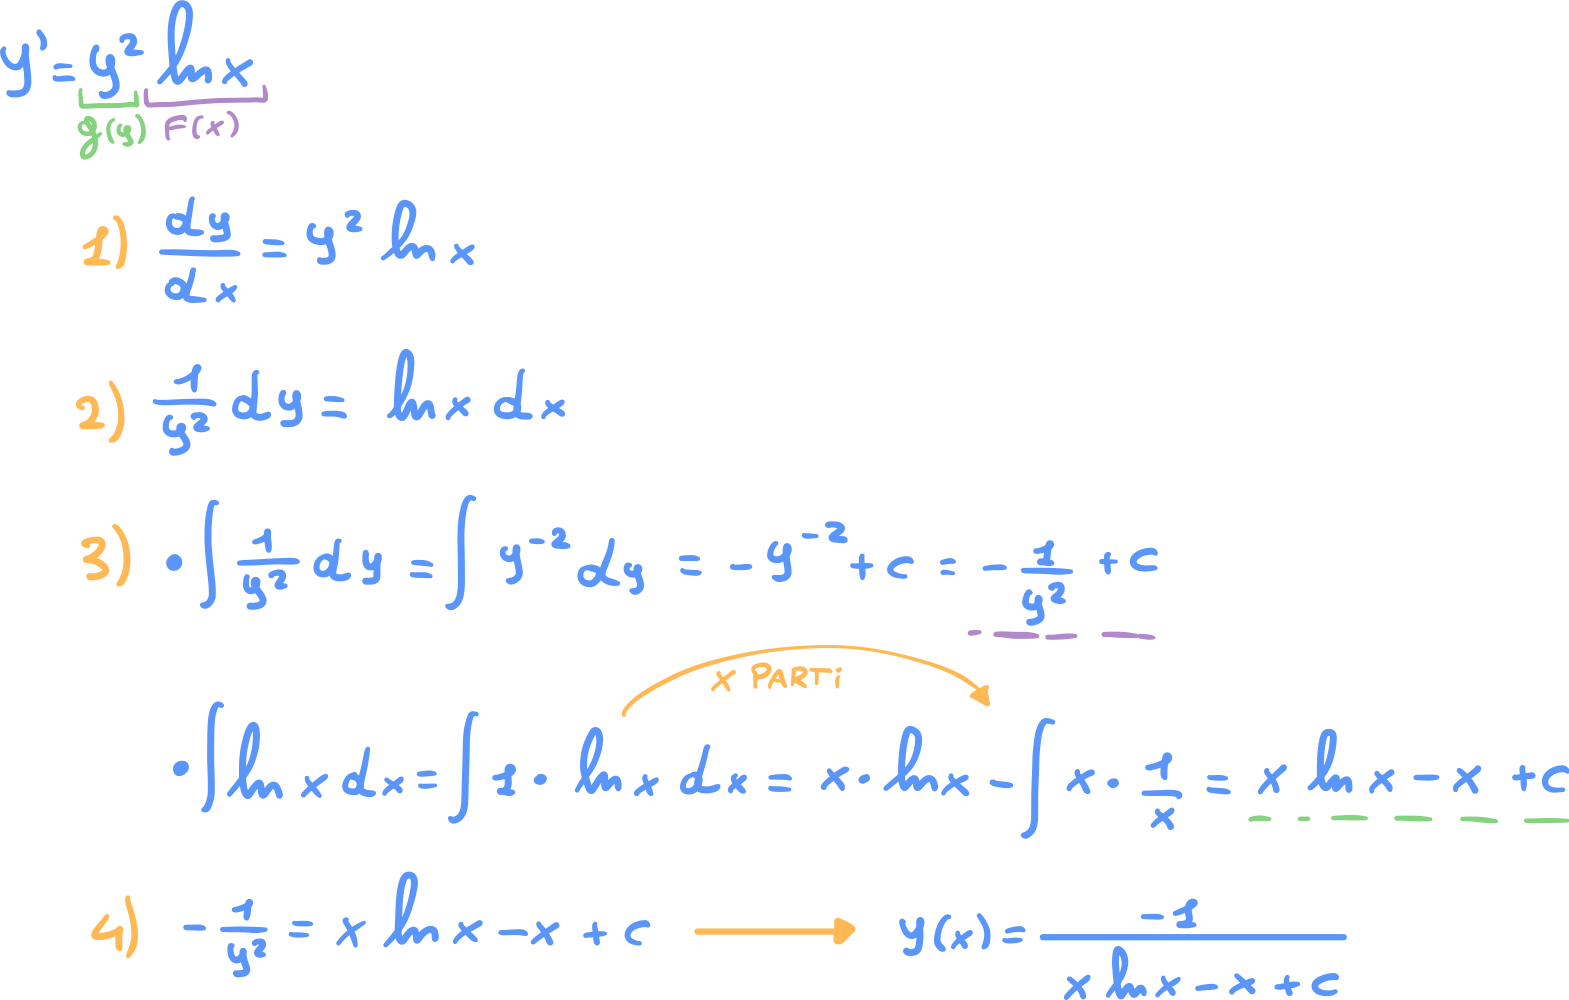 y' = y² ln x
g(y) F(x)
1) dy/dx = y² ln x
2) 1/y² dy = ln x dx
3) • ∫ 1/y² dy = ∫ y⁻² dy = - y⁻² + c = - 1/y² + c
x PARTi
• ∫ ln x dx = ∫ 1 · ln x dx = x · ln x - ∫ x · 1/x = x ln x - x + c
4) - 1/y² = x ln x - x + c → y(x) = -1/(x ln x - x + c)